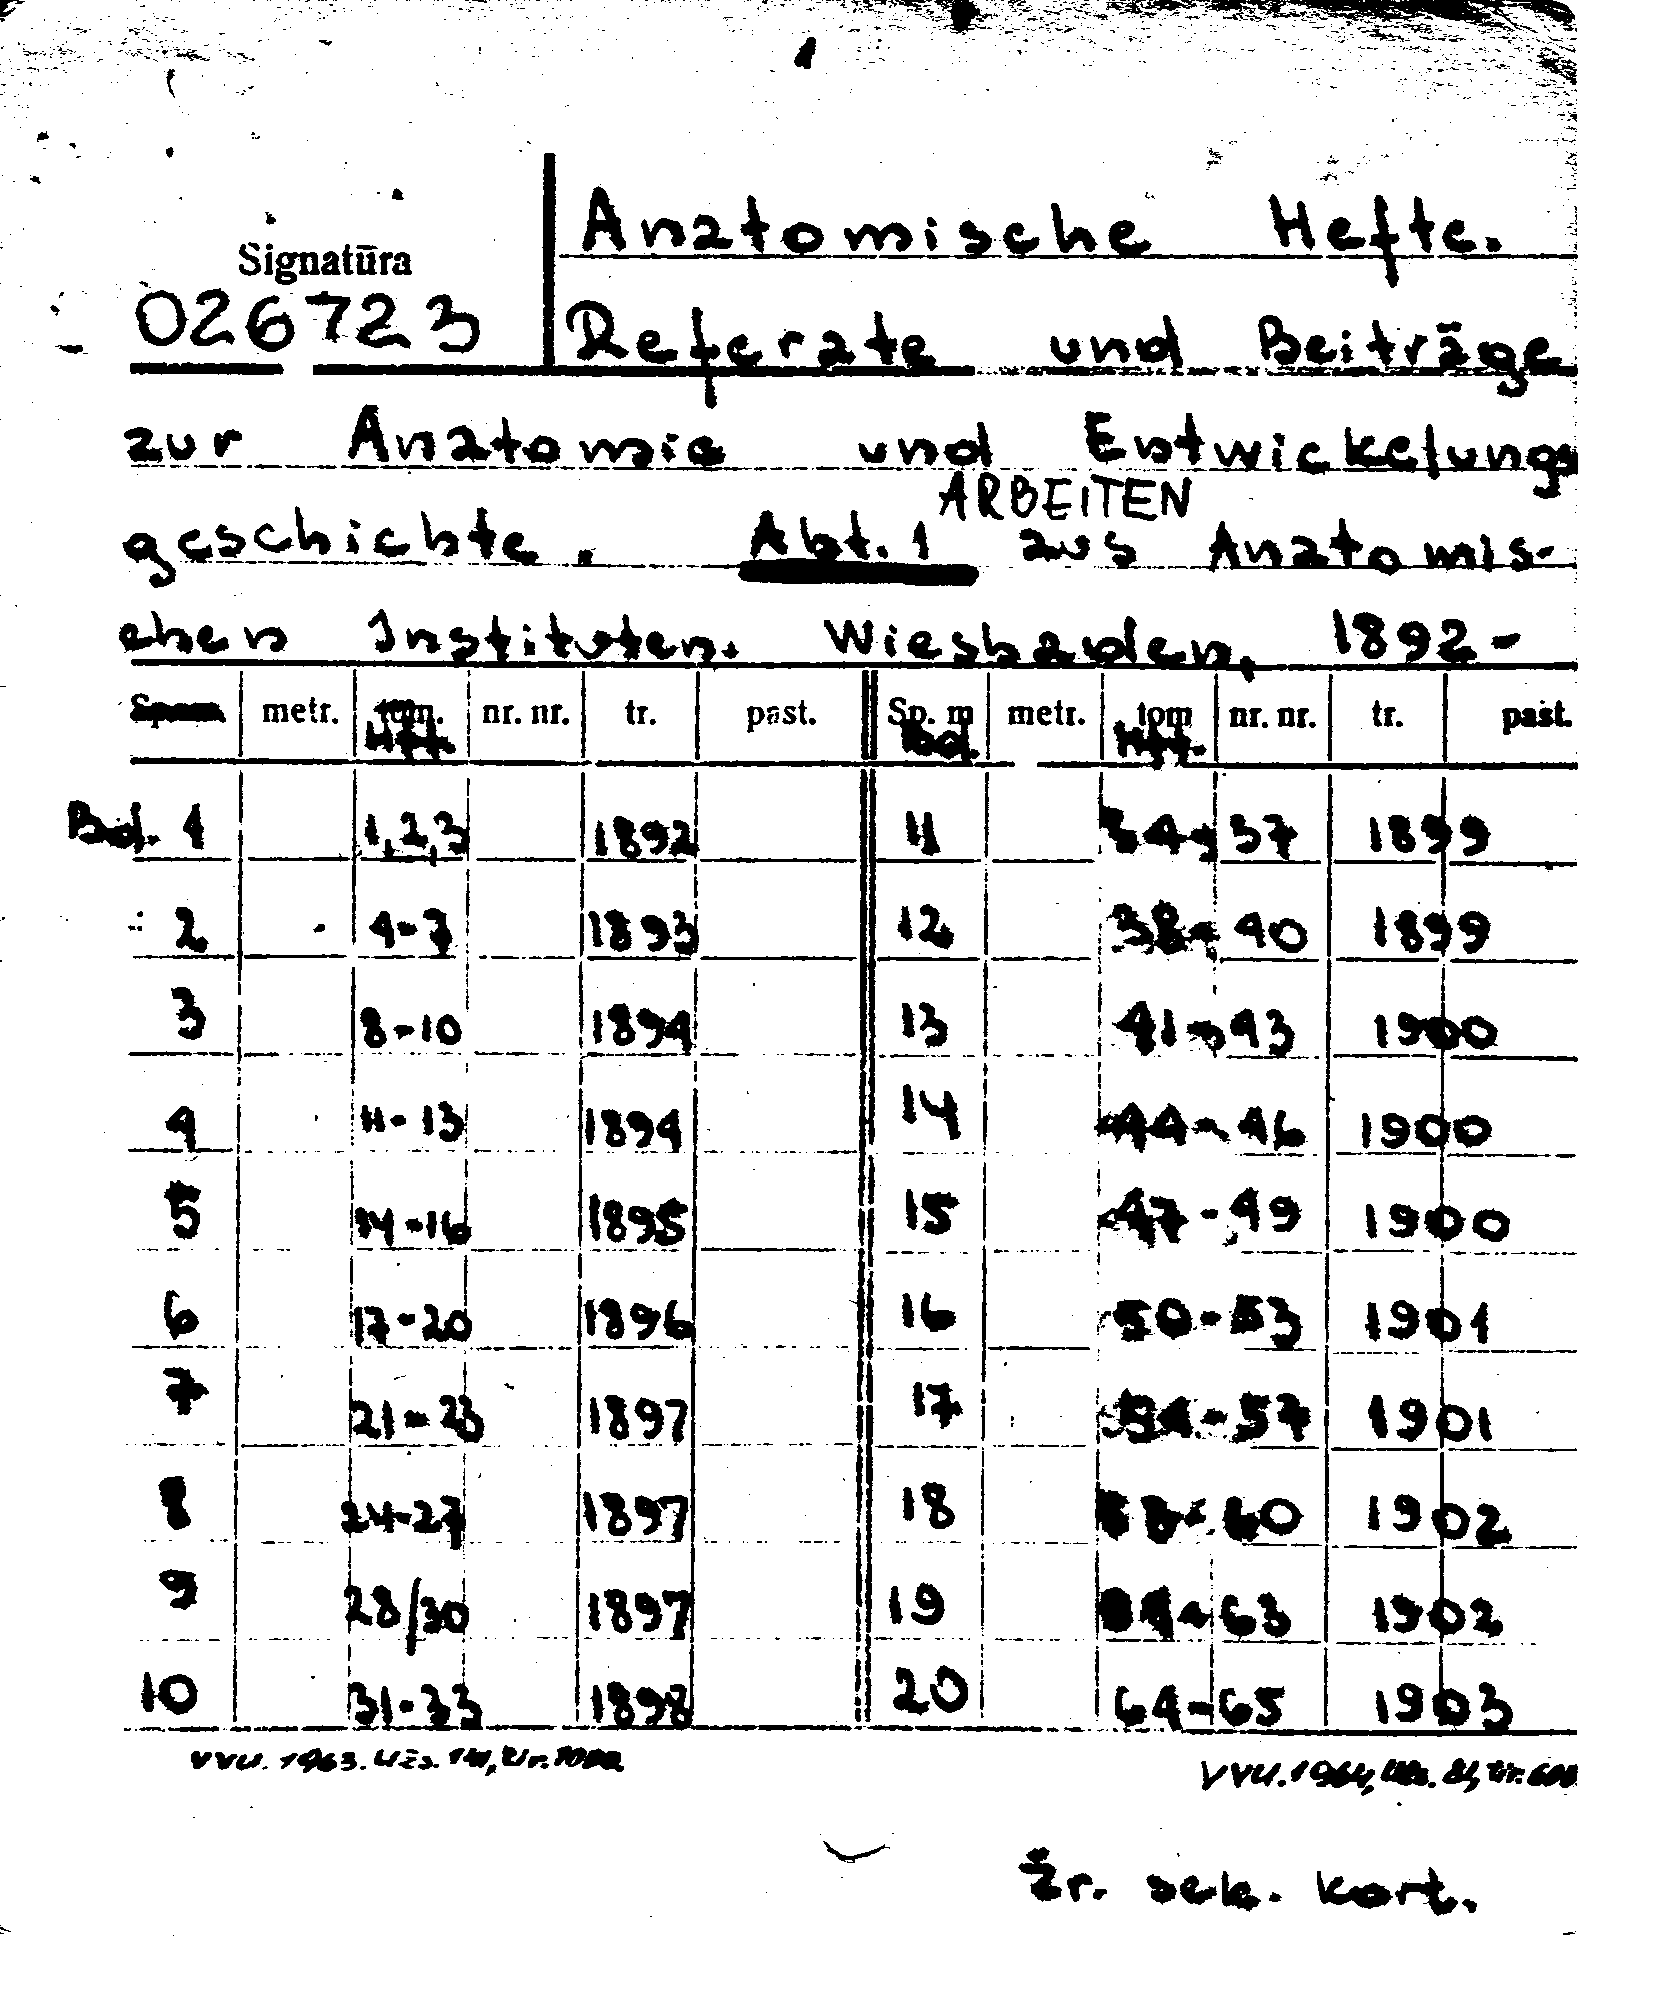 Anatomische Hefte.
Signatūra
026723 Referate und Beiträge
zur Anatomie und Entwickelungs
ARBEITEN
geschichte. Abt. 1 aus Anatomis-
chen Instituten. Wiesbaden, 1892-
metr. tom. nr. nr. tr. past. Sp. m metr. tom nr. nr. tr. past.
Hft. Bd. Hft.
Bd. 1 1,2,3 1892 11 34-37 1899
2 4-7 1893 12 38-40 1899
3 8-10 1894 13 41-43 1900
4 11-13 1894 14 44-46 1900
5 14-16 1895 15 47-49 1900
6 17-20 1896 16 50-53 1901
7 21-23 1897 17 54-57 1901
8 24-27 1897 18 58-60 1902
9 28/30 1897 19 61-63 1902
10 31-33 1898 20 64-65 1903
VVU. 1963. Užs. Nr. VVU. 1964, Užs. 81,
Žr. sek. kort.